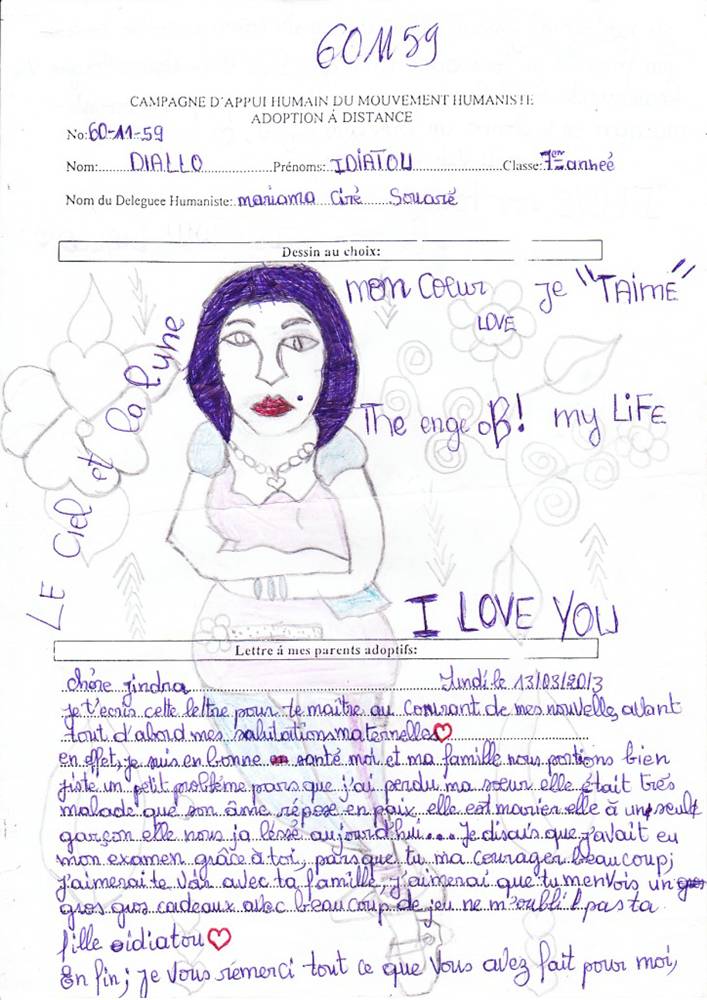 601159
CAMPAGNE D'APPUI HUMAIN DU MOUVEMENT HUMANISTE
ADOPTION Á DISTANCE
No: 60-11-59
Nom: DIALLO Prénoms: IDIATOU Classe: 7ème anneé
Nom du Deleguee Humaniste: mariama Ciré Souaré
Dessin au choix:
mon Coeur je "TAime"
LOVE
LE Ciel et la lune
The enge oB! my LiFE
I LOVE YOU
Lettre á mes parents adoptifs:
chère jindra Lundi le 13/03/2013
je t'ecris cette lettre pour te maitre au Courant de mes nouvelles avant
tout d'abord mes salutations maternelles
en effet, je suis en bonne santé moi et ma famille nous portions bien
jiste un petit problème parsque j'ai perdu ma soeur elle était très
malade que son âme répose en paix, elle est marier elle à un seult
garçon elle nous ja lessé aujourd'hui... Je disais que j'avait eu
mon examen grâce à toi, parsque tu ma courager beaucoup;
j'aimerai te voir avec ta famille, j'aimerai que tu menvois un
gros gros cadeaux avec beaucoup de jeu ne m'oubli pas ta
fille idiatou
En fin; je vous remerci tout ce que vous avez fait pour moi,